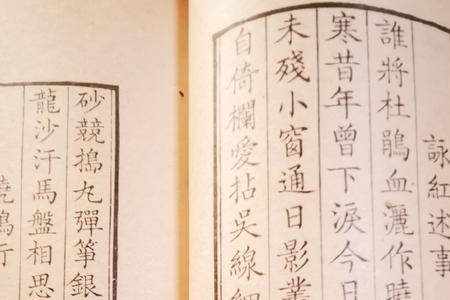 詠紅述事
誰將杜鵑血灑作曉
寒昔年曾下淚今日
未殘小窗通日影業
自倚欄愛拈吳線細
砂競搗九彈箏銀
龍沙汗馬盤相思
鴉行